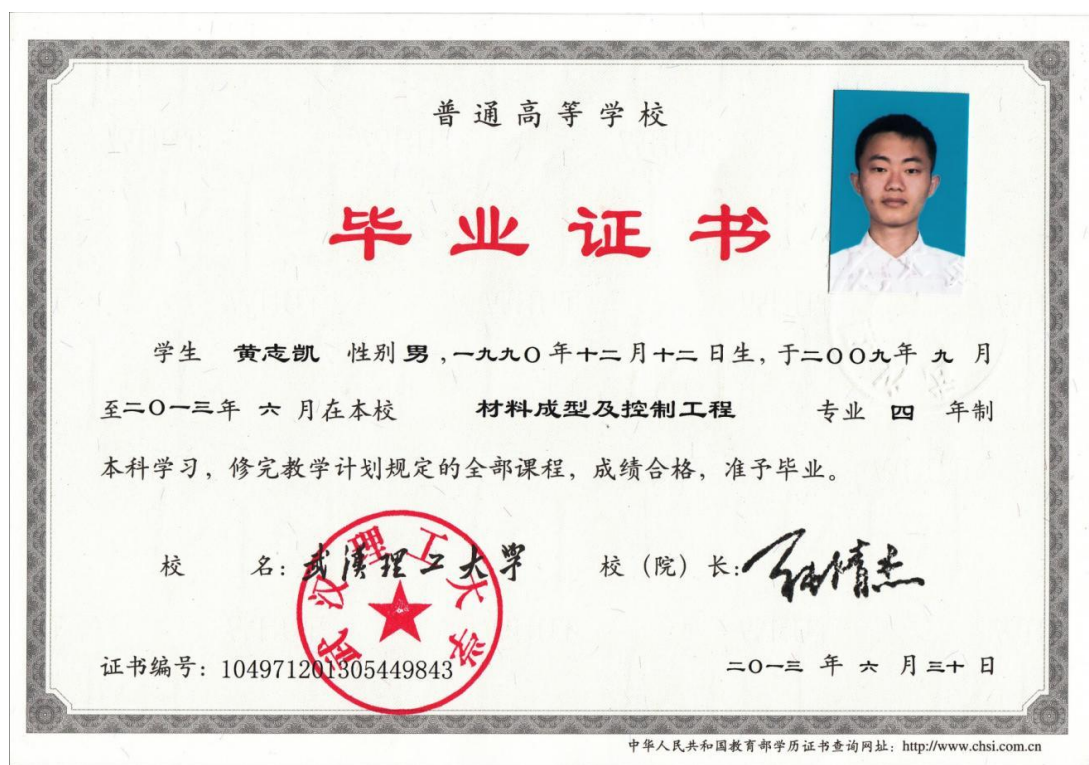 普通高等学校
毕业证书
学生 黄志凯 性别 男，一九九〇年十二月十二日生，于二〇〇九年 九 月
至二〇一三年 六 月在本校 材料成型及控制工程 专业 四 年制
本科学习，修完教学计划规定的全部课程，成绩合格，准予毕业。
校 名：武漢理工大学 校（院）长：
武汉理工大学
证书编号：104971201305449843 二〇一三 年 六 月三十日
中华人民共和国教育部学历证书查询网址：http://www.chsi.com.cn